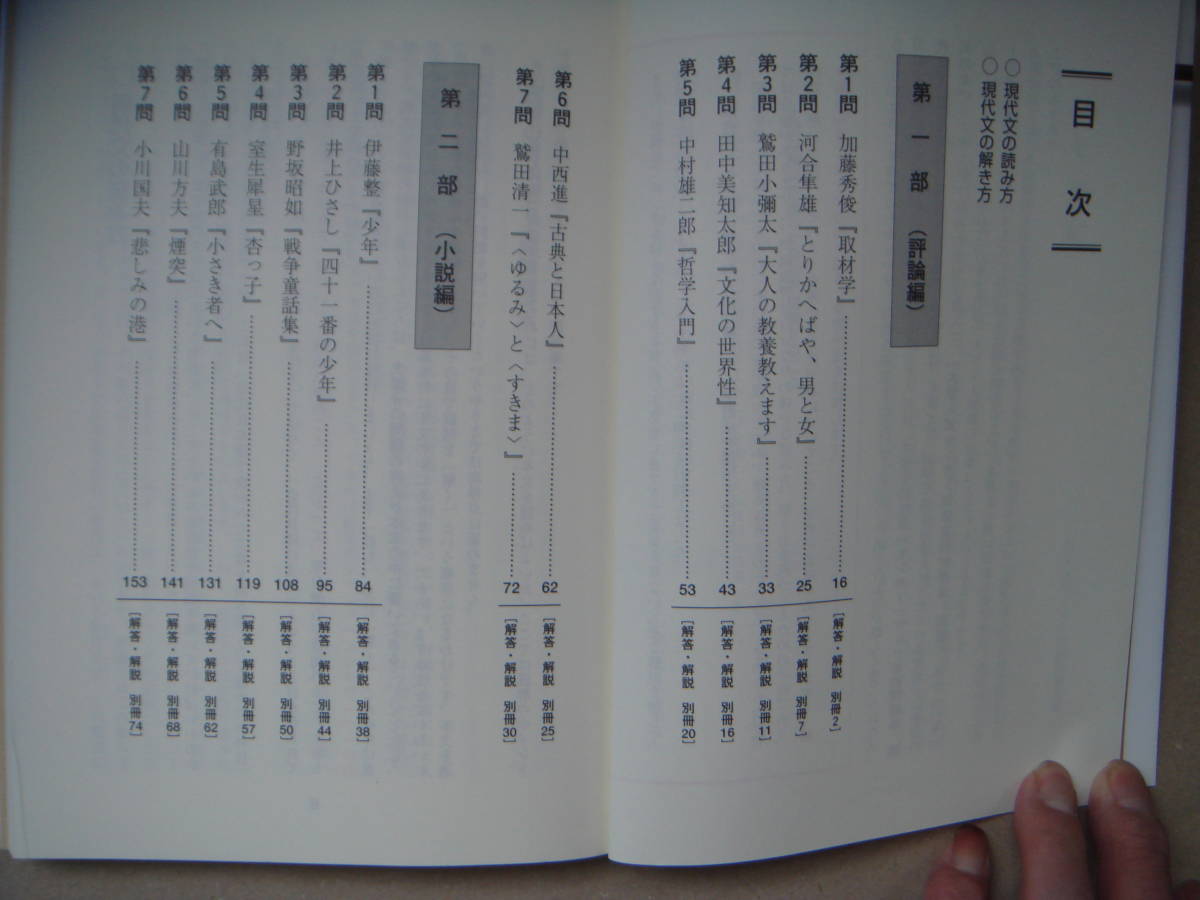 目次
○ 現代文の読み方
○ 現代文の解き方
第一部（評論編）
第1問 加藤秀俊『取材学』……16［解答・解説 別冊2］
第2問 河合隼雄『とりかへばや、男と女』……25［解答・解説 別冊7］
第3問 鷲田小彌太『大人の教養教えます』……33［解答・解説 別冊11］
第4問 田中美知太郎『文化の世界性』……43［解答・解説 別冊16］
第5問 中村雄二郎『哲学入門』……53［解答・解説 別冊20］
第6問 中西進『古典と日本人』……62［解答・解説 別冊25］
第7問 鷲田清一『〈ゆるみ〉と〈すきま〉』……72［解答・解説 別冊30］
第二部（小説編）
第1問 伊藤整『少年』……84［解答・解説 別冊38］
第2問 井上ひさし『四十一番の少年』……95［解答・解説 別冊44］
第3問 野坂昭如『戦争童話集』……108［解答・解説 別冊50］
第4問 室生犀星『杏っ子』……119［解答・解説 別冊57］
第5問 有島武郎『小さき者へ』……131［解答・解説 別冊62］
第6問 山川方夫『煙突』……141［解答・解説 別冊68］
第7問 小川国夫『悲しみの港』……153［解答・解説 別冊74］